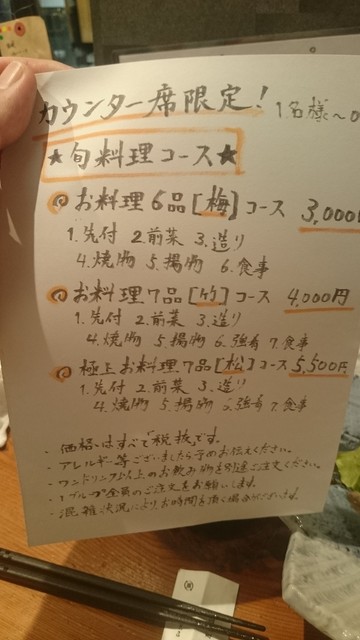 カウンター席限定! 1名様〜
★旬料理コース★
お料理6品[梅]コース 3,000
1.先付 2.前菜 3.造り
4.焼物 5.揚物 6.食事
お料理7品[竹]コース 4,000円
1.先付 2.前菜 3.造り
4.焼物 5.揚物 6.強肴 7.食事
極上お料理7品[松]コース 5,500円
1.先付 2.前菜 3.造り
4.焼物 5.揚物 6.強肴 7.食事
・価格はすべて税抜です。
・アレルギー等ございましたら予めお伝えください。
・ワンドリンク以上のお飲み物を別途ご注文ください。
・1グループ全員のご注文をお願いします。
・混雑状況によりお時間を頂く場合がございます。